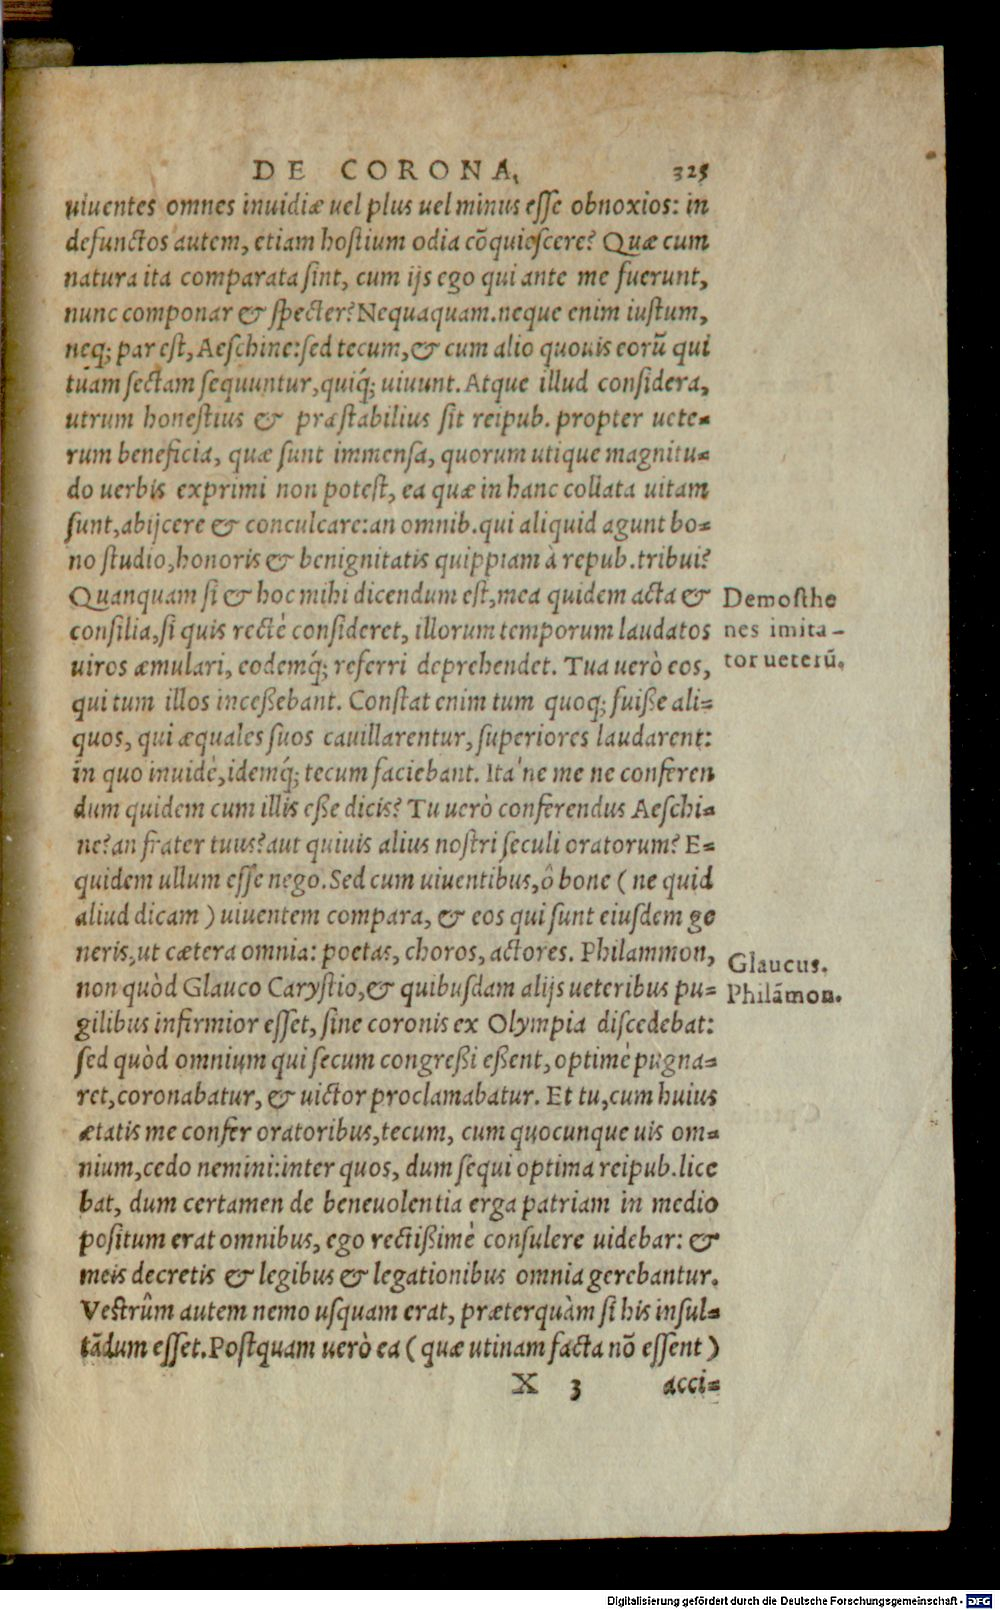 DE CORONA, 325
uiuentes omnes inuidiæ uel plus uel minus esse obnoxios: in
defunctos autem, etiam hostium odia cōquiescere? Quæ cum
natura ita comparata sint, cum ijs ego qui ante me fuerunt,
nunc componar & specter? Nequaquam. neque enim iustum,
neq; par est, Aeschine: sed tecum, & cum alio quouis eorū qui
tuam sectam sequuntur, quiq́; uiuunt. Atque illud considera,
utrum honestius & præstabilius sit reipub. propter uete-
rum beneficia, quæ sunt immensa, quorum utique magnitu-
do uerbis exprimi non potest, ea quæ in hanc collata uitam
sunt, abijcere & conculcare: an omnib. qui aliquid agunt bo-
no studio, honoris & benignitatis quippiam à repub. tribui?
Quanquam si & hoc mihi dicendum est, mea quidem acta &
consilia, si quis rectè consideret, illorum temporum laudatos
uiros æmulari, eodemq́; referri deprehendet. Tua uerò eos,
qui tum illos inceßebant. Constat enim tum quoq; fuiße ali-
quos, qui æquales suos cauillarentur, superiores laudarent:
in quo inuidè, idemq́; tecum faciebant. Ita'ne me ne conferen
dum quidem cum illis eße dicis? Tu uerò conferendus Aeschi-
ne? an frater tuus? aut quiuis alius nostri seculi oratorum? E-
quidem ullum esse nego. Sed cum uiuentibus, ô bone ( ne quid
aliud dicam ) uiuentem compara, & eos qui sunt eiusdem ge
neris, ut cætera omnia: poetas, choros, actores. Philammon,
non quòd Glauco Carystio, & quibusdam alijs ueteribus pu-
gilibus infirmior esset, sine coronis ex Olympia discedebat:
sed quòd omnium qui secum congreßi eßent, optimè pugna-
ret, coronabatur, & uictor proclamabatur. Et tu, cum huius
ætatis me confer oratoribus, tecum, cum quocunque uis om-
nium, cedo nemini: inter quos, dum sequi optima reipub. lice
bat, dum certamen de beneuolentia erga patriam in medio
positum erat omnibus, ego rectißimè consulere uidebar: &
meis decretis & legibus & legationibus omnia gerebantur.
Vestrûm autem nemo usquam erat, præterquàm si his insul-
tādum esset. Postquam uerò ea ( quæ utinam facta nō essent )
X 3 acci-
Demosthe
nes imita-
tor ueterū.
Glaucus.
Philāmon.
Digitalisierung gefördert durch die Deutsche Forschungsgemeinschaft - DFG